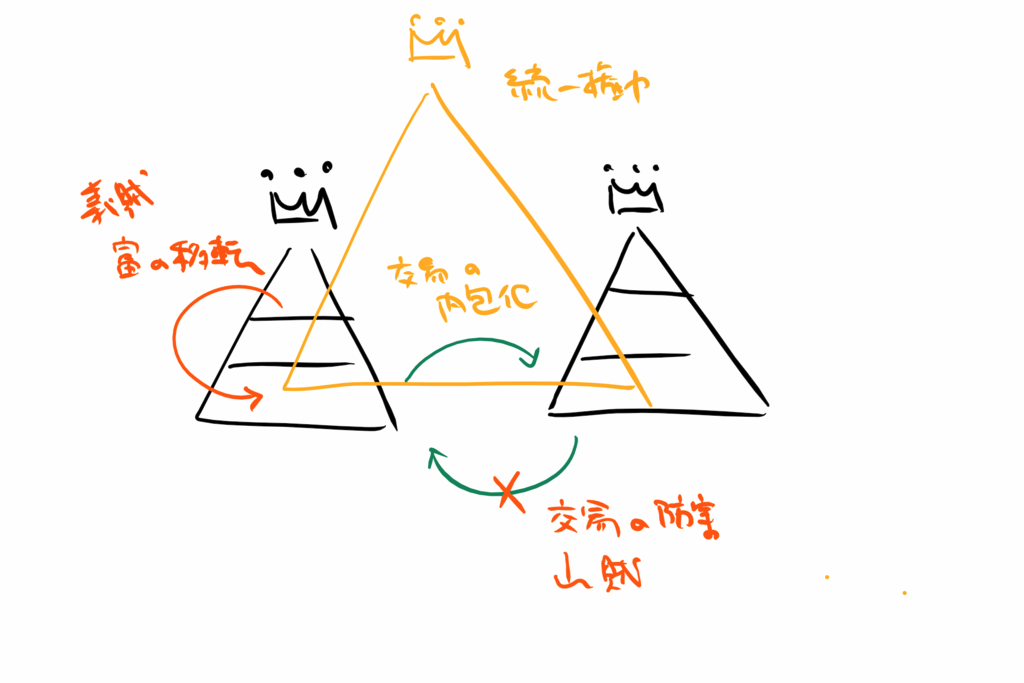 統一権力
義賊
富の移転
交易の
内包化
交易の防害
山賊